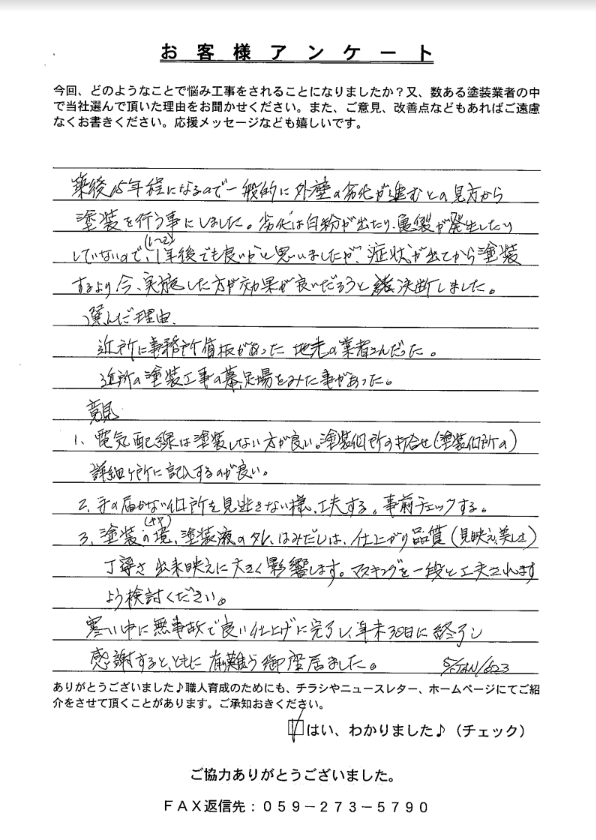 お客様アンケート
今回、どのようなことで悩み工事をされることになりましたか？又、数ある塗装業者の中
で当社選んで頂いた理由をお聞かせください。また、ご意見、改善点などもあればご遠慮
なくお書きください。応援メッセージなども嬉しいです。
築後15年程になるので一般的に外壁の劣化が進むとの見方から
塗装を行う事にしました。劣化は白粉が出たり、亀裂が発生したり
していないので、(1~2)1年後でも良いかと思いましたが、症状が出てから塗装
するより今、実施した方が効果が良いだろうと決断しました。
選んだ理由、
近所に事務所看板があった 地元の業者さんだった。
近所の塗装工事の幕、足場をみた事があった。
意見
1、電気配線は塗装しない方が良い。塗装個所の打合せ(塗装個所の)
詳細ヶ所に記入するのが良い。
2、手の届かない個所を見逃さない様、工夫する。事前チェックする。
3、塗装の境、塗装液のタレ、はみだしは、仕上がり品質(見映え、美しさ)
丁寧さ 出来映えに大きく影響します。マスキングを一段と工夫されます
よう検討ください。
寒い中に無事故で良い仕上げに完了し、年末30日に終了し
感謝するとともに有難う御座居ました。 5/JAN/2023
ありがとうございました♪職人育成のためにも、チラシやニュースレター、ホームページにてご紹
介をさせて頂くことがあります。ご承知おきください。
はい、わかりました♪（チェック）
ご協力ありがとうございました。
ＦＡＸ返信先：０５９－２７３－５７９０